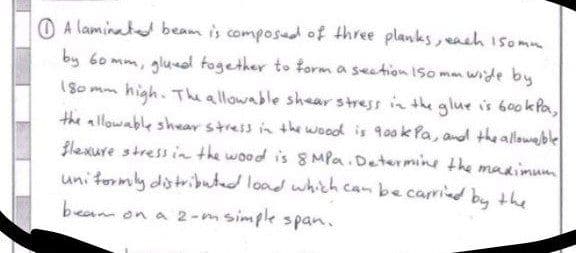 ① A laminated beam is composed of three planks, each 150 mm
by 60 mm, glued together to form a section 150 mm wide by
180 mm high. The allowable shear stress in the glue is 600 kPa,
the allowable shear stress in the wood is 900 kPa, and the allowable
flexure stress in the wood is 8 MPa. Determine the maximum
uniformly distributed load which can be carried by the
beam on a 2-m simple span.